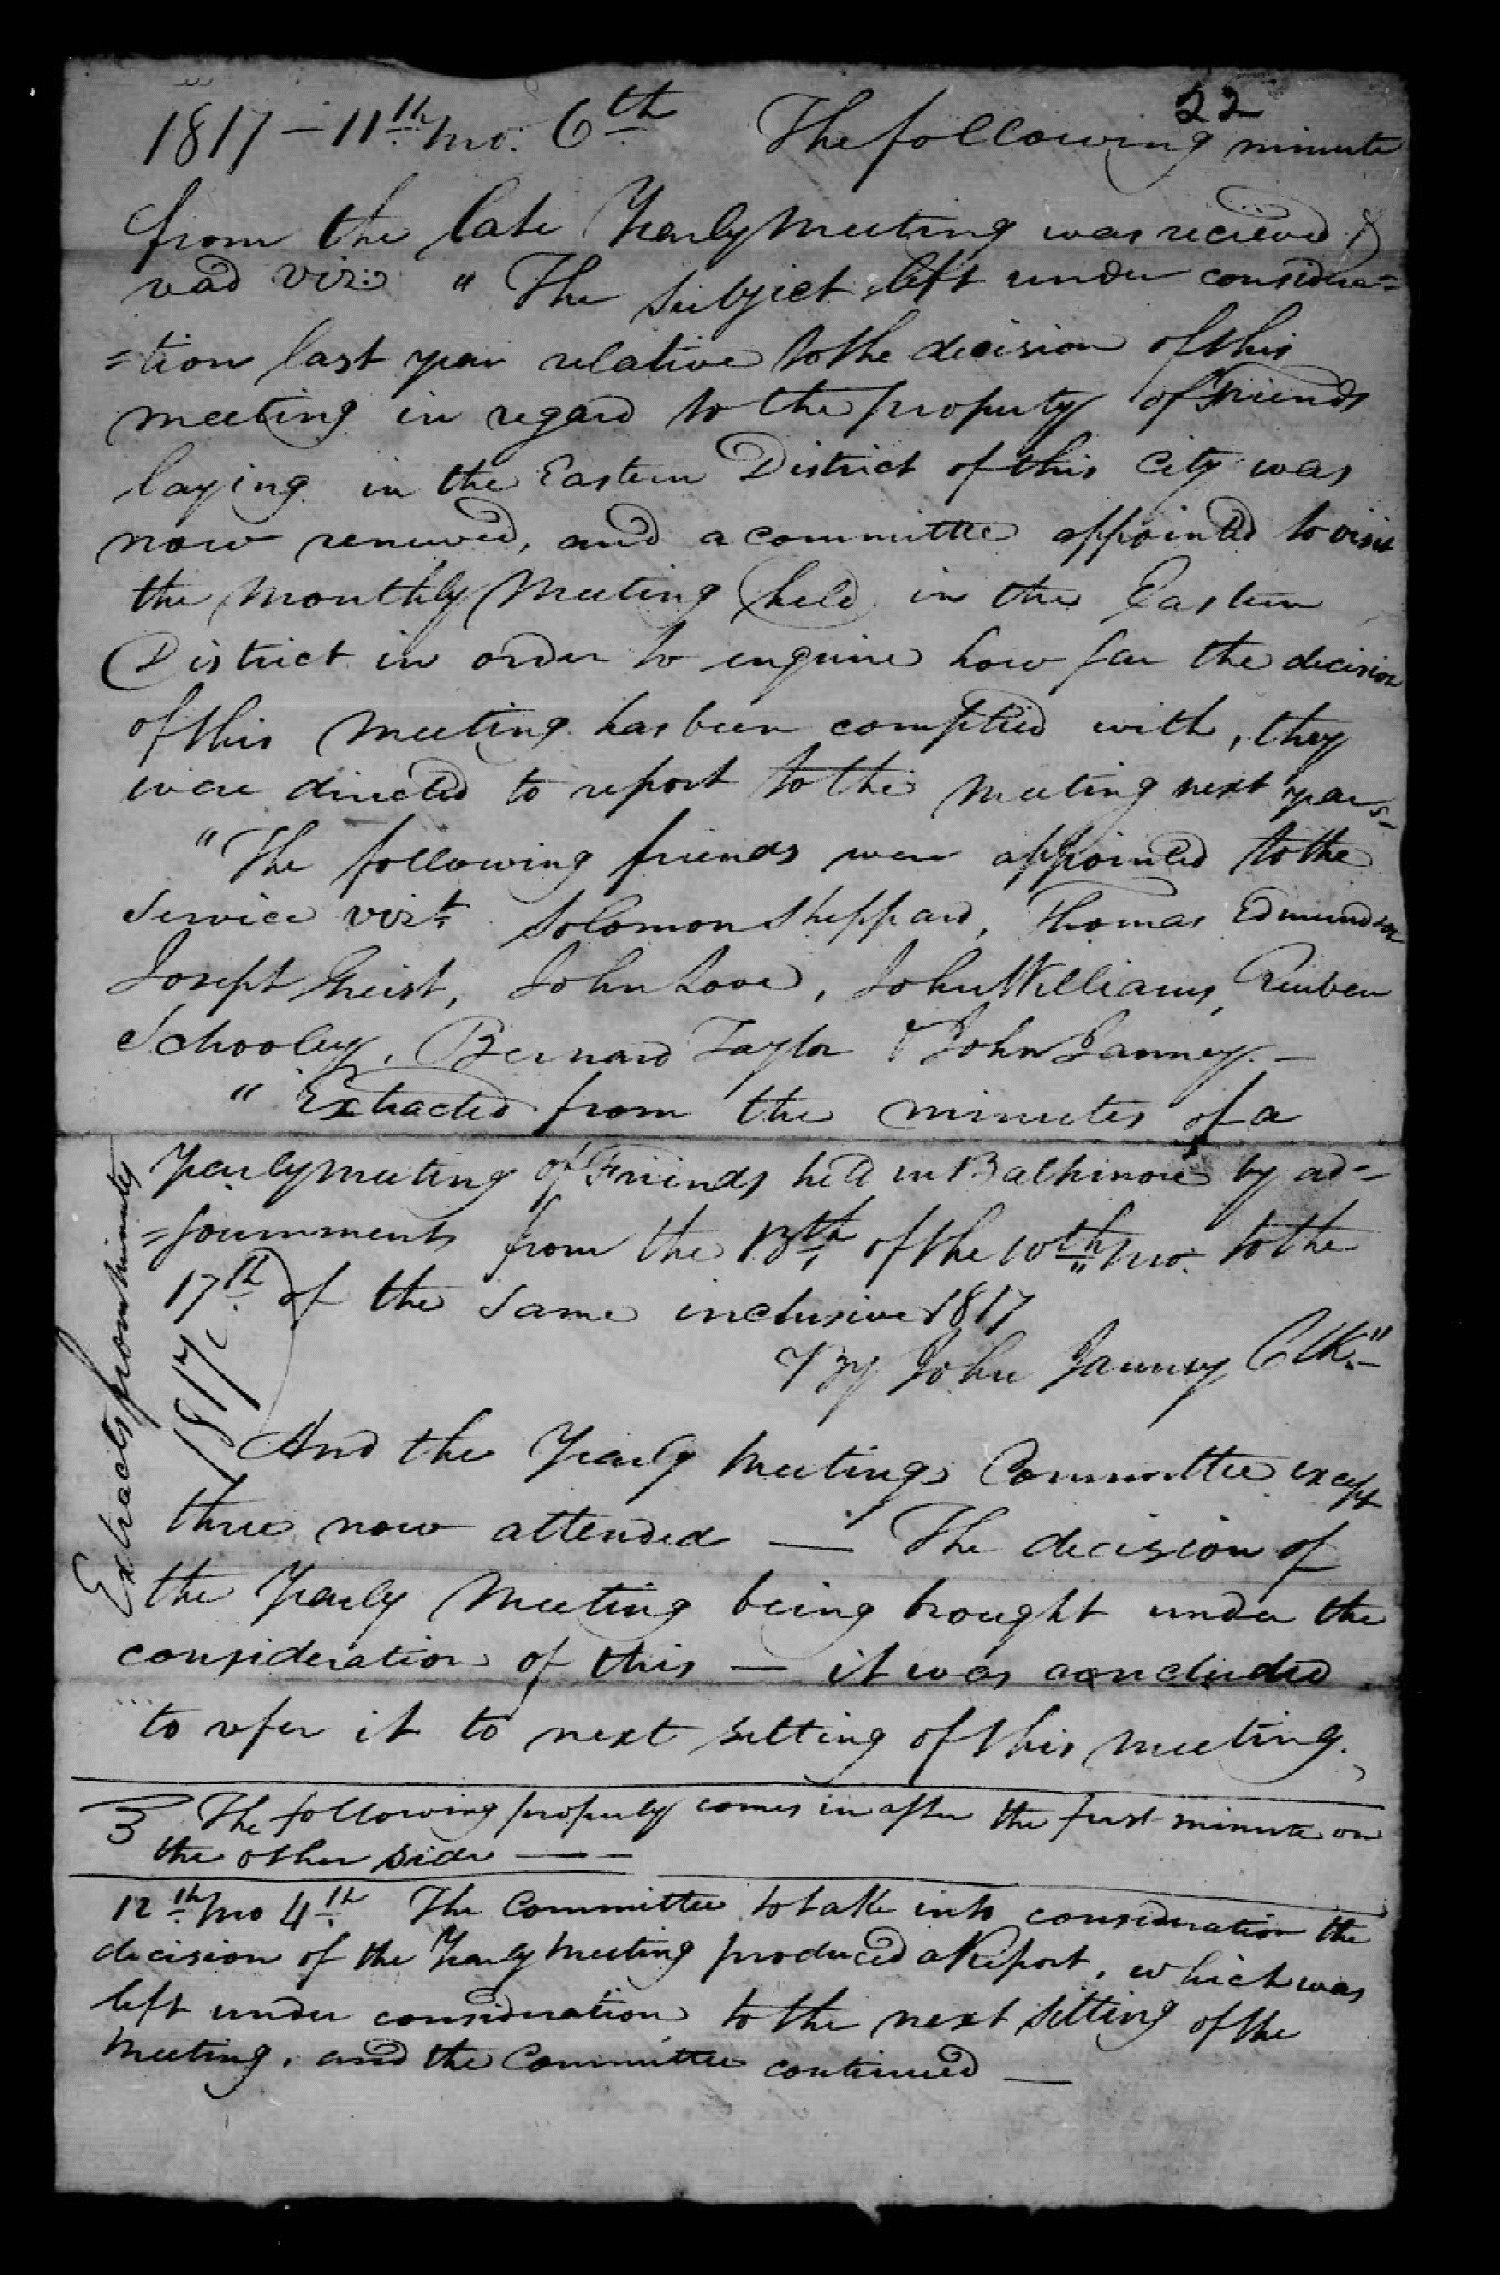 22
1817 – 11th mo. 6th The following minute
from the late Yearly Meeting was recieved &
read viz: " The subject left under considera=
=tion last year relative to the decision of this
meeting in regard to the property of Friends
laying in the Eastern District of this City was
now renewed, and a committee appointed to visit
the Monthly Meeting held in the Eastern
District in order to enquire how far the decision
of this Meeting has been complied with, they
were directed to report to the meeting next year –
"The following friends were appointed to the
service vizt. Solomon Sheppard, Thomas Edmundson
Joseph Greist, John Love, John Williams, Reuben
Schooley, Bernard Taylor & John Janney. –
" Extracted from the minutes of a
Yearly Meeting of Friends held in Baltimore by ad=
=journments from the 13th of the 10th mo. to the
17th of the same inclusive 1817
By John Janney Clk." –
And the Yearly Meetings Committee except
three now attended — The decision of
the Yearly Meeting being brought under the
consideration of this — it was concluded
to refer it to next sitting of this meeting.
The following property comes in after the first minute on
the other side — –
12th mo 4th The Committee to take into consideration the
decision of the Yearly Meeting produced a Report, which was
left under consideration to the next sitting of the
Meeting, and the Committee continued —
Extracts from Minutes
1817